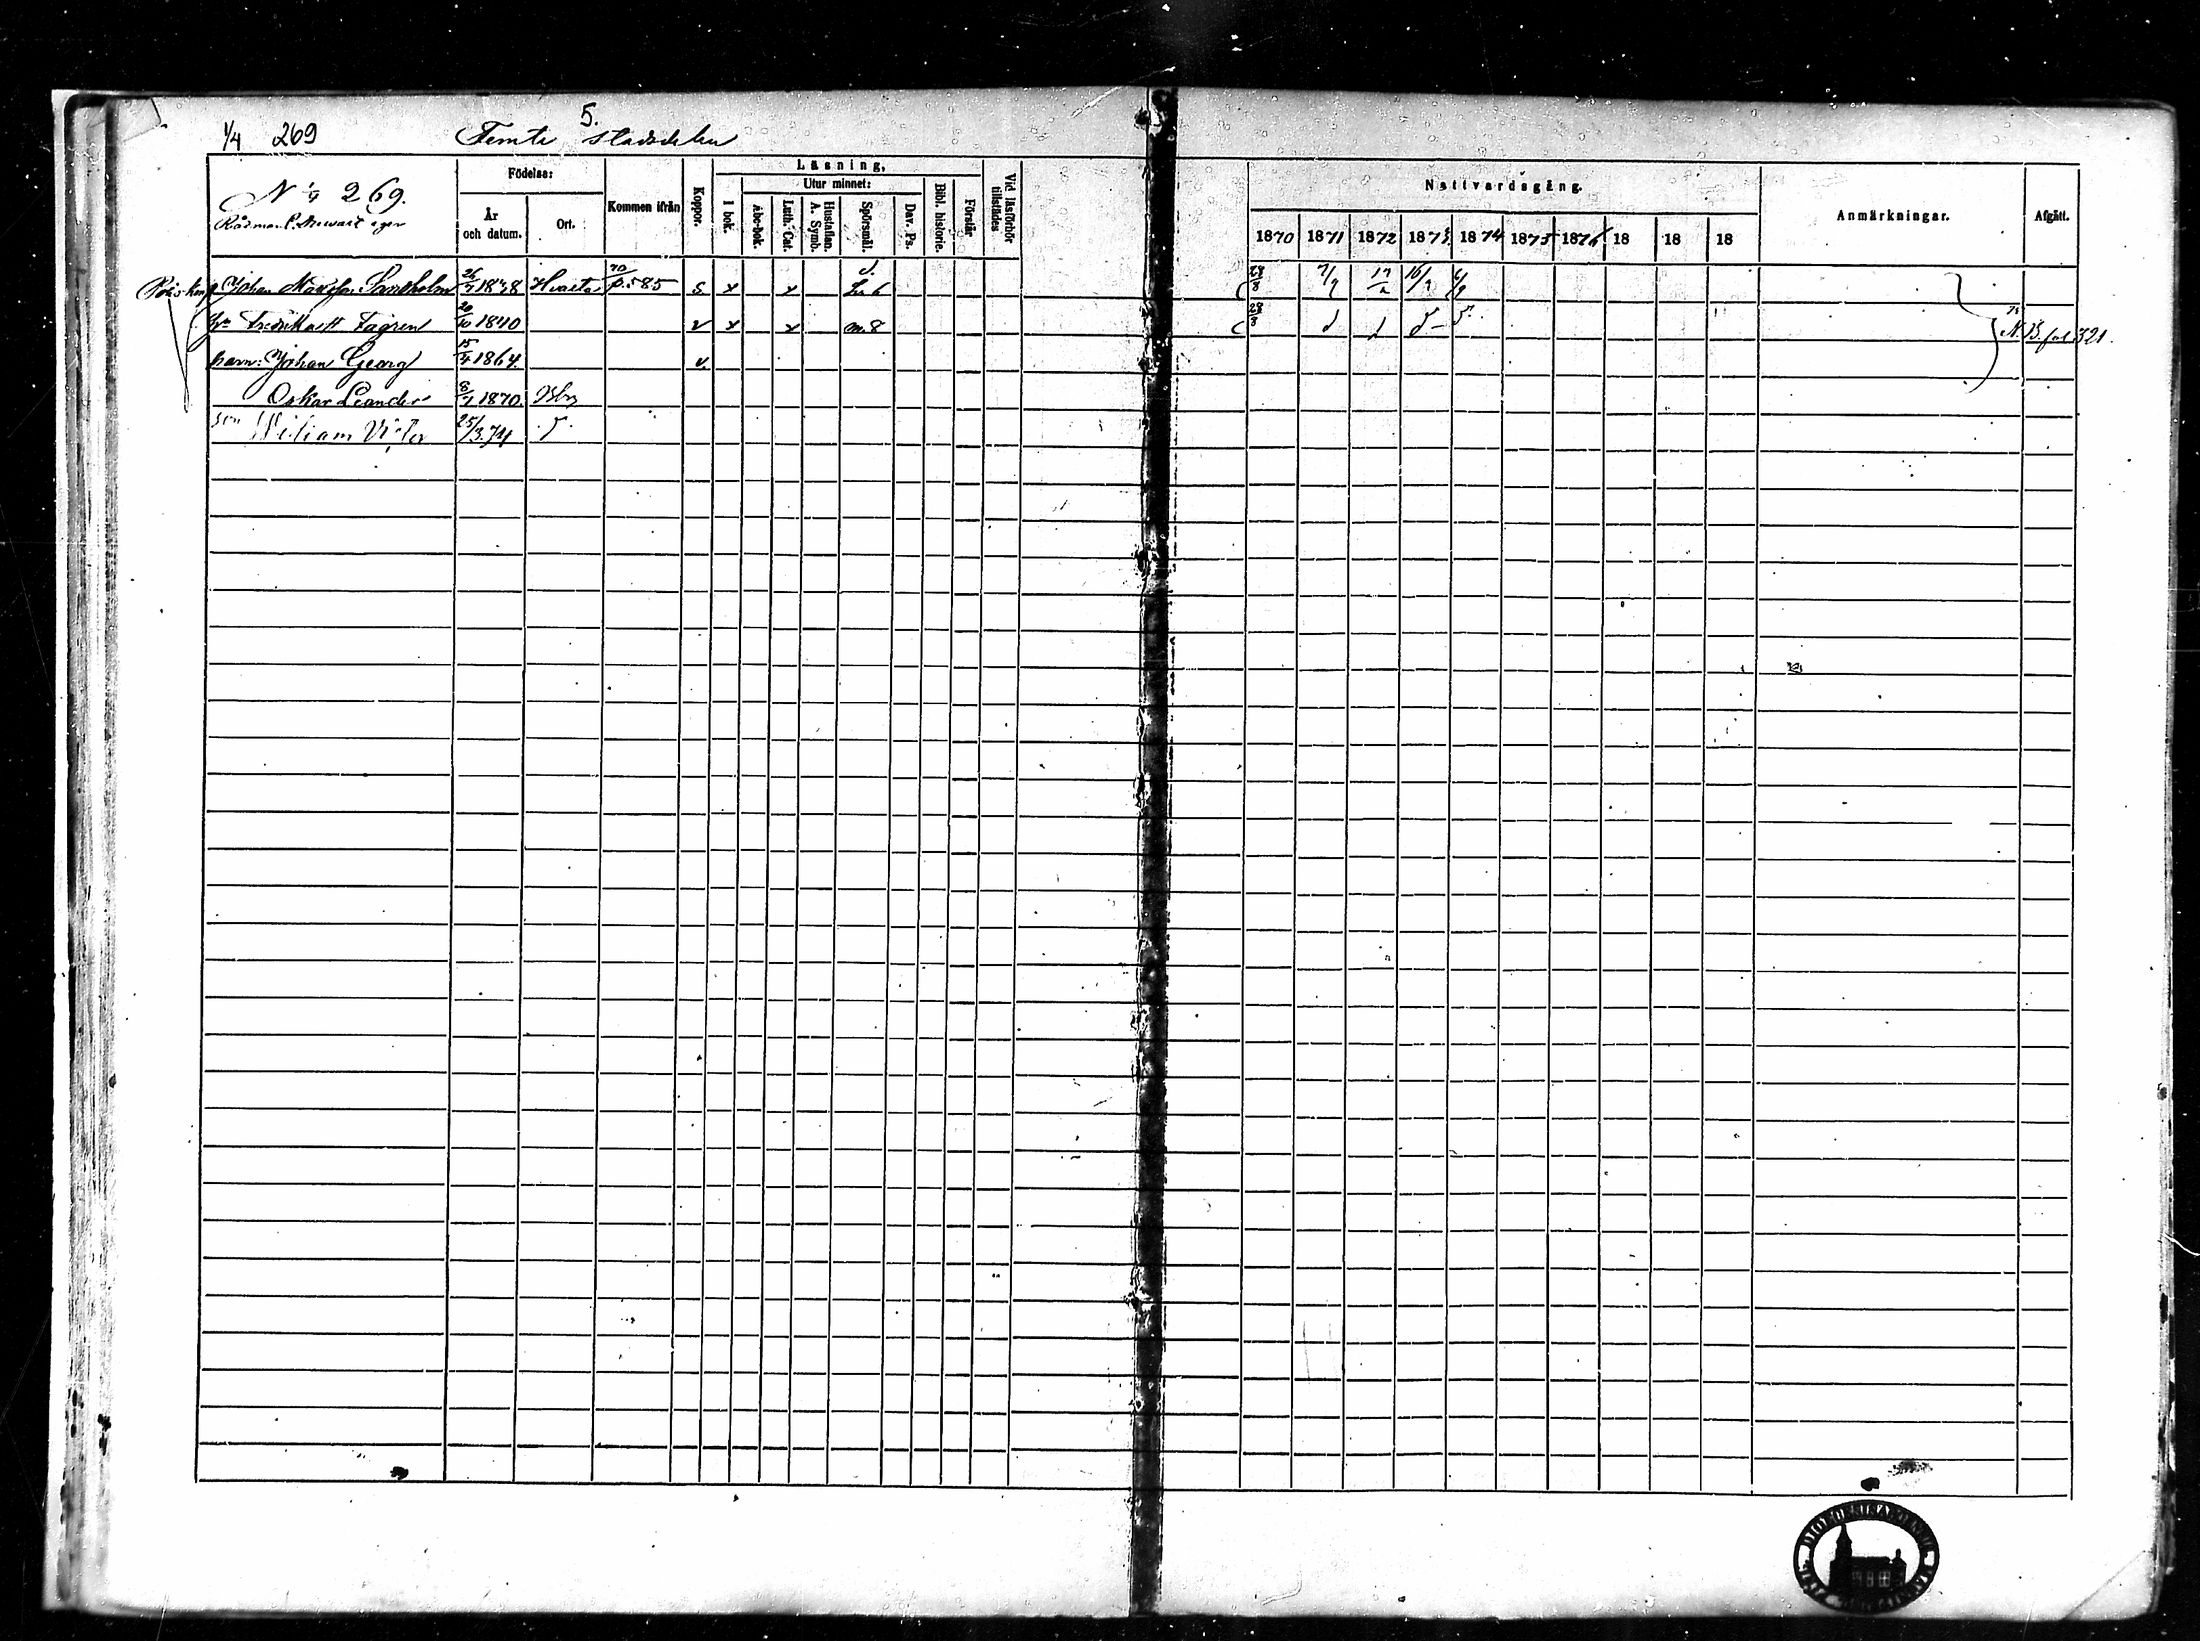 5.
1/4 269 Femte stadsdelen
N 1/4 269.
Rådman C. eger
Födelse:
År och datum.
Ort.
Kommen ifrån
Koppor.
Läsning.
I bok.
Utur minnet:
Abc-bok.
Luth. Cat.
Hustaflan. A. Symb.
Spörsmål.
Dav. Ps.
Bibl. historie.
Förstår
Vid läsförhör tillstädes
Nattvardsgång.
1870 1871 1872 1873 1874 1875 1876 18 18 18
Anmärkningar.
Afgått.
Johan 26/7 18 8 70/p. 585 s x x 28/8 7/9 17/2 16/9 6/9
Fredrika Fagren 20/10 1840 v x x m. 8 28/8
barn: Johan Georg 15/4 1864. v.
Oskar Leander 8/7 1870.
son William Victor 25/3.74
N. B. fol 321.